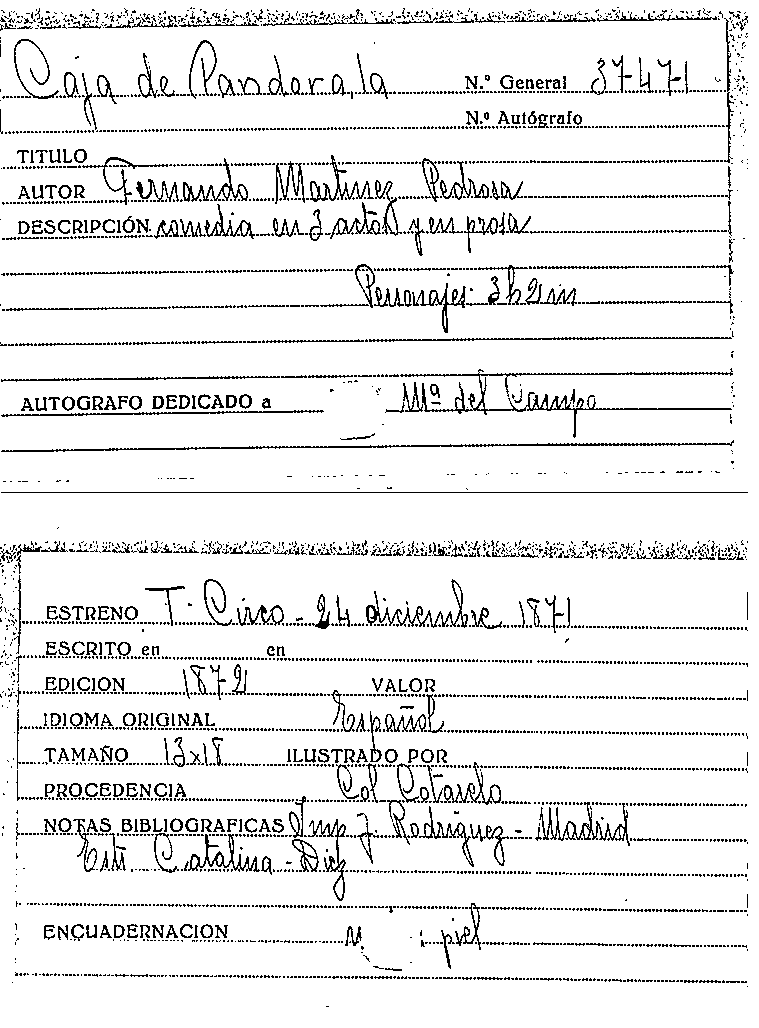 Caja de Pandora, la N.º General 37471
N.º Autógrafo
TITULO
AUTOR Fernando Martinez Pedrosa
DESCRIPCIÓN comedia en 3 actos y en prosa
Personajes: 3h 2m
AUTOGRAFO DEDICADO a Mª del Campo
ESTRENO T. Circo - 24 diciembre 1871
ESCRITO en en
EDICION 1872 VALOR
IDIOMA ORIGINAL Español
TAMAÑO 13x18 ILUSTRADO POR
PROCEDENCIA Col Cotarelo
NOTAS BIBLIOGRAFICAS Imp J. Rodriguez - Madrid
Catalina - Diez
ENCUADERNACION piel